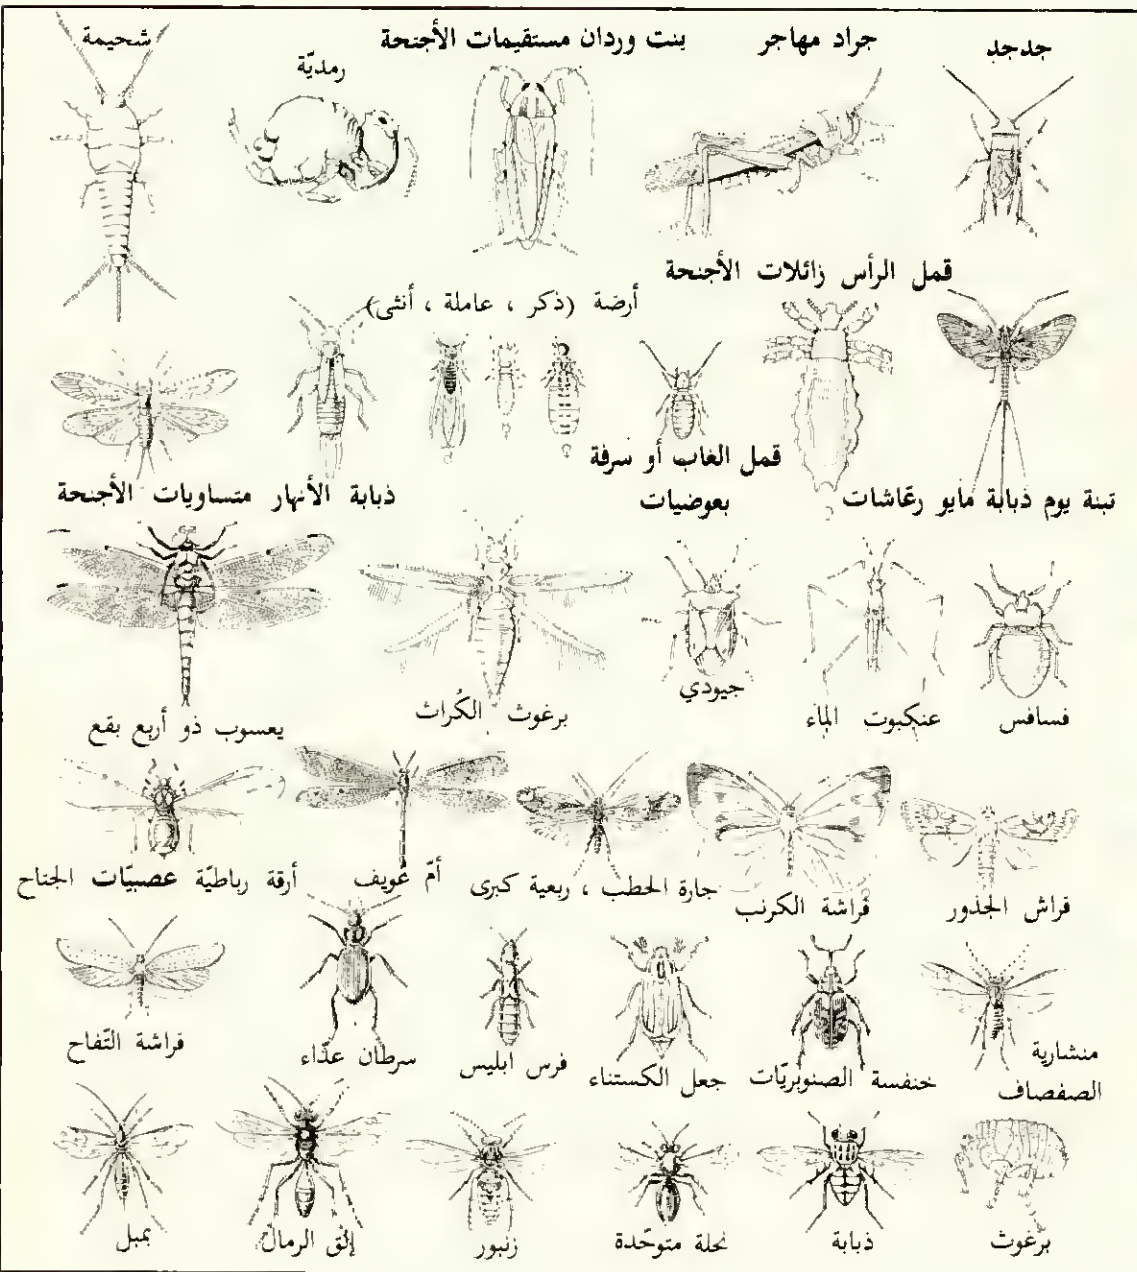 جدجد
جراد مهاجر
بنت وردان مستقيمات الأجنحة
رمديّة
شحيمة
قمل الرأس زائلات الأجنحة
أرضة (ذكر ، عاملة ، أنثى)
قمل الغاب أو سرفة
بعوضيات
تبنة يوم ذبابة مايو رعّاشات
ذبابة الأنهار متساويات الأجنحة
فسافس
عنكبوت الماء
جيودي
برغوث الكُراث
يعسوب ذو أربع بقع
فراش الجذور
فراشة الكرنب
جارة الحطب ، ربعية كبرى
أمّ عُويف
أرقة رباطيّة عصبيّات الجناح
منشارية
الصفصاف
خنفسة الصنوبريّات
جعل الكستناء
فرس ابليس
سرطان عدّاء
فراشة التّفاح
برغوث
ذبابة
نحلة متوحّدة
زنبور
إلق الرمال
بمبل